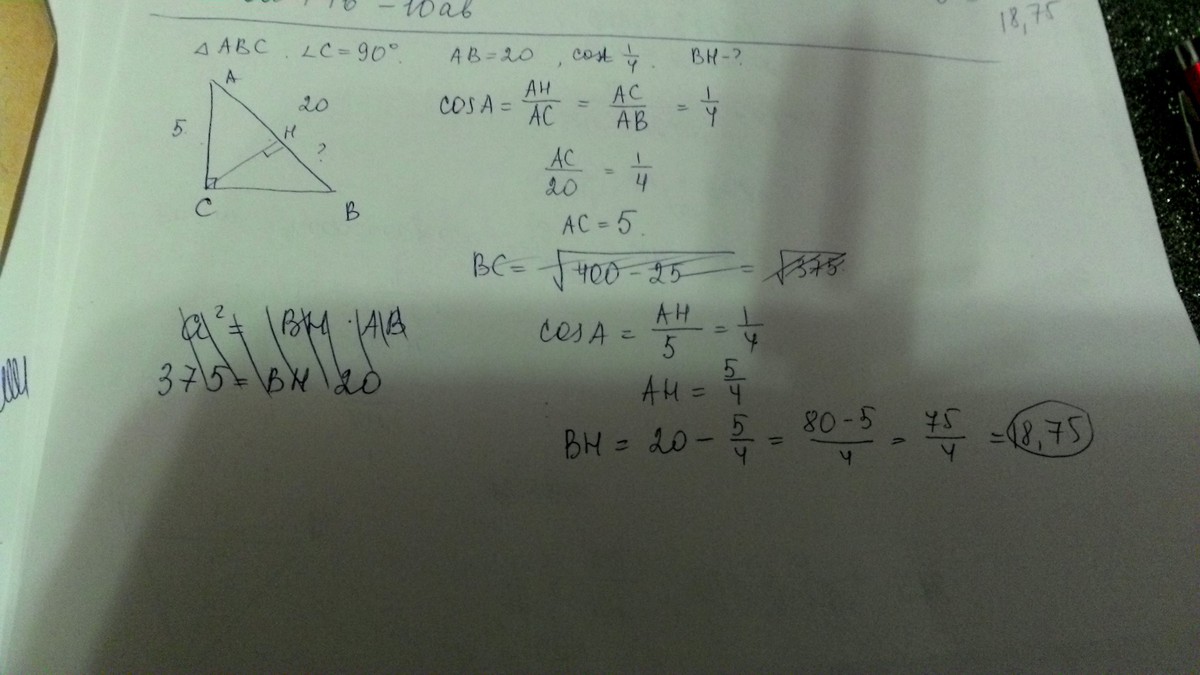 - 10ab
18,75
△ ABC. ∠C = 90°. AB = 20, cosA 1/4. BH - ?
A
20
5
H
?
C
B
cosA = AH/AC = AC/AB = 1/4
AC/20 = 1/4
AC = 5.
BC = √(400 - 25) = √375
a² = BH · AB
375 = BH 20
cosA = AH/5 = 1/4
AH = 5/4
BH = 20 - 5/4 = (80 - 5)/4 = 75/4 = 18,75